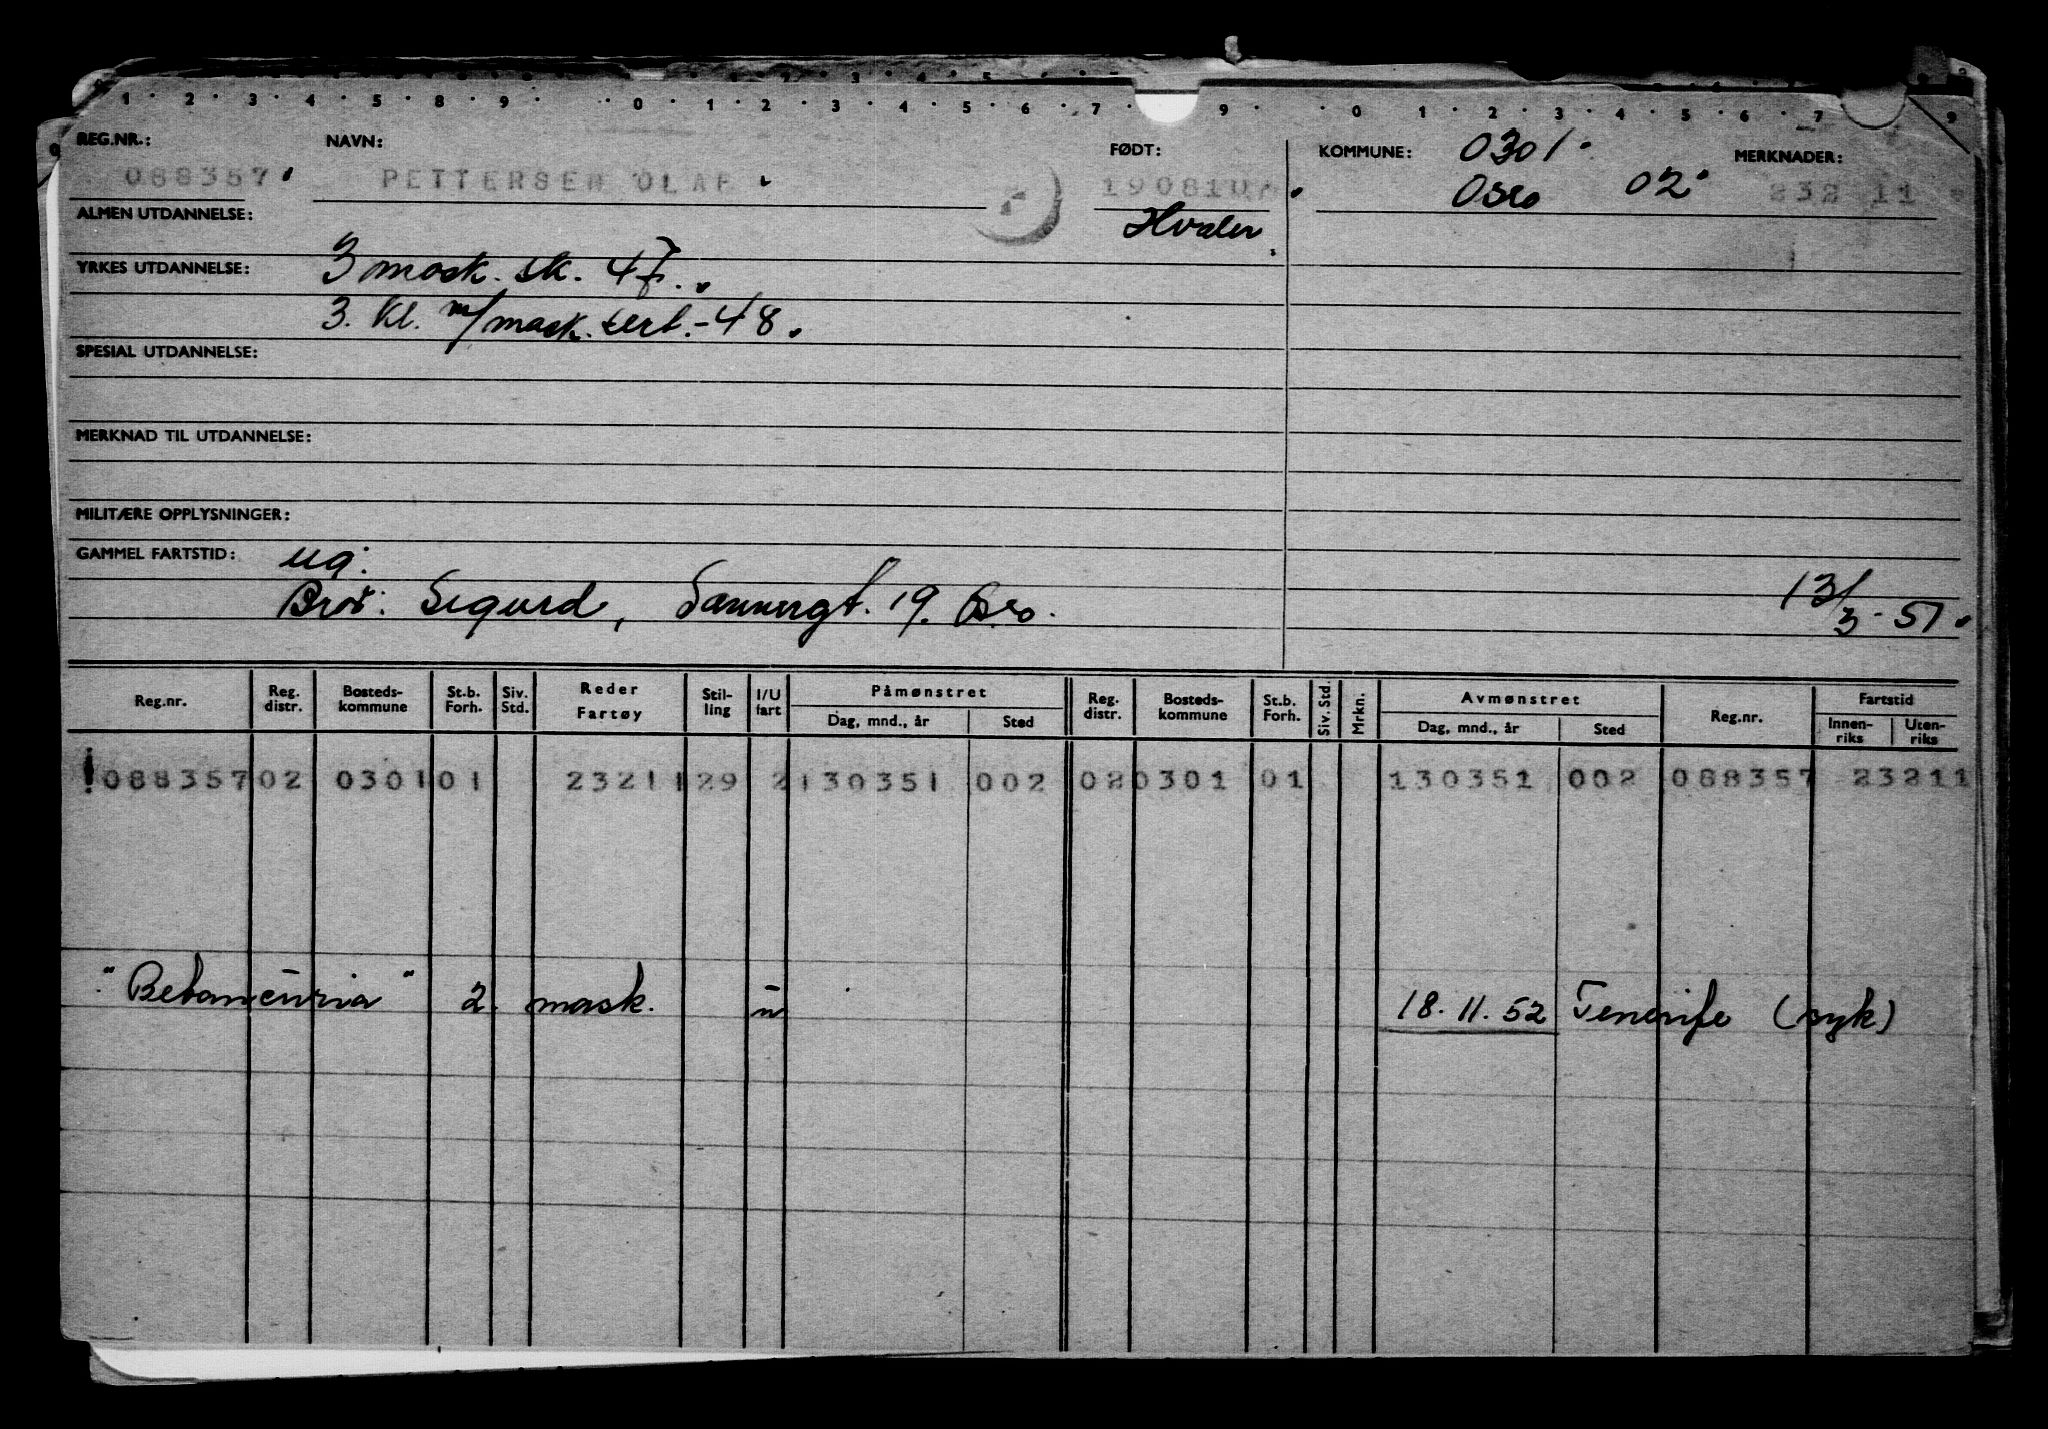 1 · 2 · 3 · 4 · 5 · 8 · 9 · 0 · 1 · 2 · 3 · 4 · 5 · 6 · 7 · 9 · 0 · 1 · 2 · 3 · 4 · 5 · 6 · 7 9
REG.NR.: NAVN: FØDT: KOMMUNE: 0301. MERKNADER:
088357. PETTERSEN OLAF. 190810 Oslo 02. 232 11
ALMEN UTDANNELSE: Hvaler
YRKES UTDANNELSE: 3 mask. sk. 47.
3. kl. m/mask. sert. -48.
SPESIAL UTDANNELSE:
MERKNAD TIL UTDANNELSE:
MILITÆRE OPPLYSNINGER:
GAMMEL FARTSTID: ug.
Bror: Sigurd, Sannergt. 19. Oslo. 13/3-51.
Reg.nr. Reg. distr. Bosteds-kommune St.b. Forh. Siv. Std. Reder Fartøy Stil-ling I/U fart Påmønstret Dag, mnd., år Sted Reg. distr. Bosteds-kommune St.b. Forh. Siv. Std. Mrkn. Avmønstret Dag, mnd., år Sted Reg.nr. Fartstid Innen-riks Uten-riks
088357 02 0301 01 23211 29 2 130351 002 02 0301 01 130351 002 088357 23211
"Betancuria" 2. mask. u 18.11.52 Tenerife (syk)